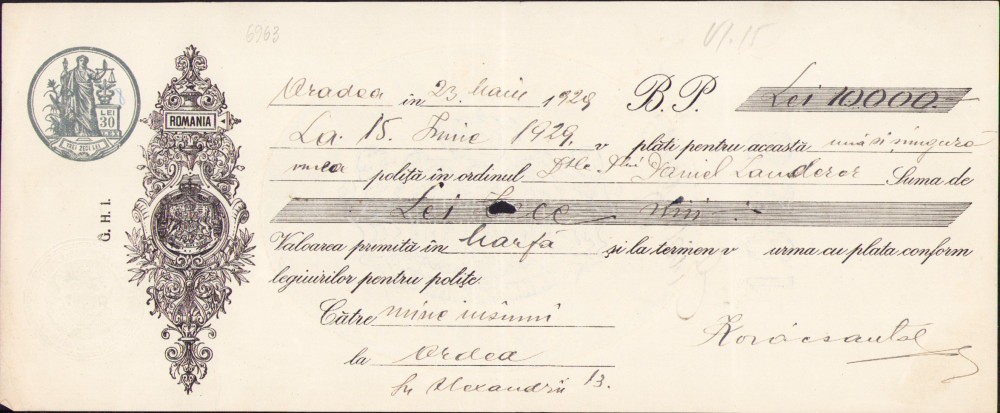 6963
VI.15
LEI
30
TREI ZECI LEI
ROMANIA
G. H. I.
Oradea în 23. Maiu 1929 B. P. Lei 10000.-
La 15. Iunie 1929. v plăti pentru această una si singura
poliță în ordinul Daniel Suma de
Lei Zece mii
Valoarea primită în Marfă și la termen v urma cu plata conform
legiuirilor pentru polițe.
Către mine insumi
la Ordea
Alexandrii 13.